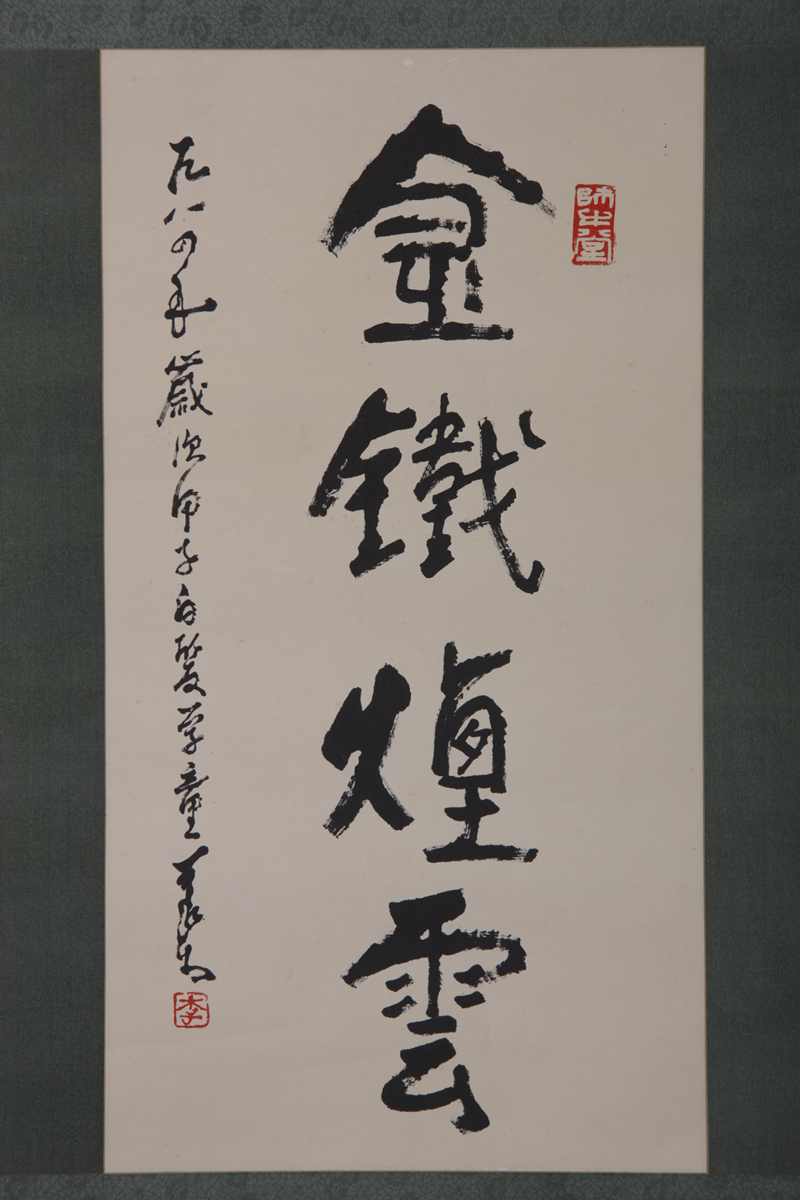 師牛堂
金鐵煙雲
一九八四年歲次甲子白髮学童可染
李